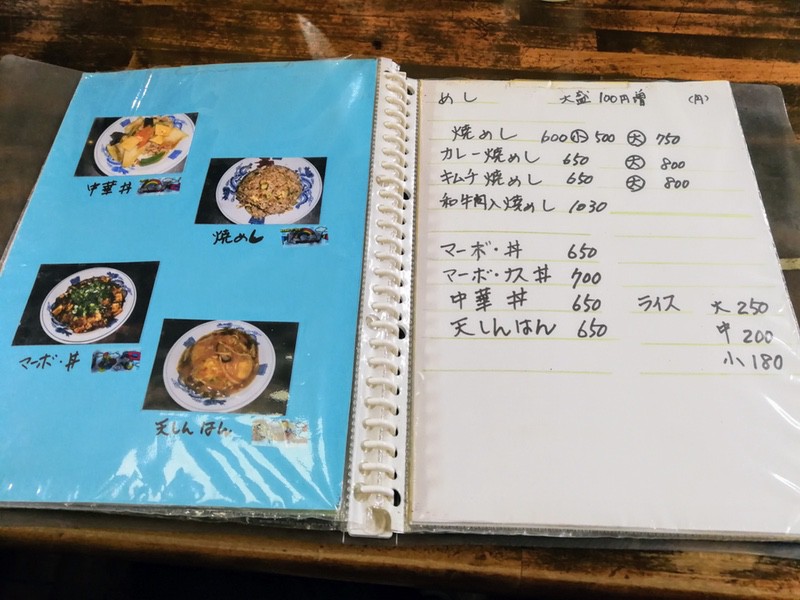 中華丼
焼めし
マーボ・丼
天しんはん
めし 大盛100円増 (円)
焼めし 600 小 500 大 750
カレー焼めし 650 大 800
キムチ焼めし 650 大 800
和牛肉入焼めし 1030
マーボ・丼 650
マーボ・ナス丼 700
中華丼 650 ライス 大250
天しんはん 650 中200
小180